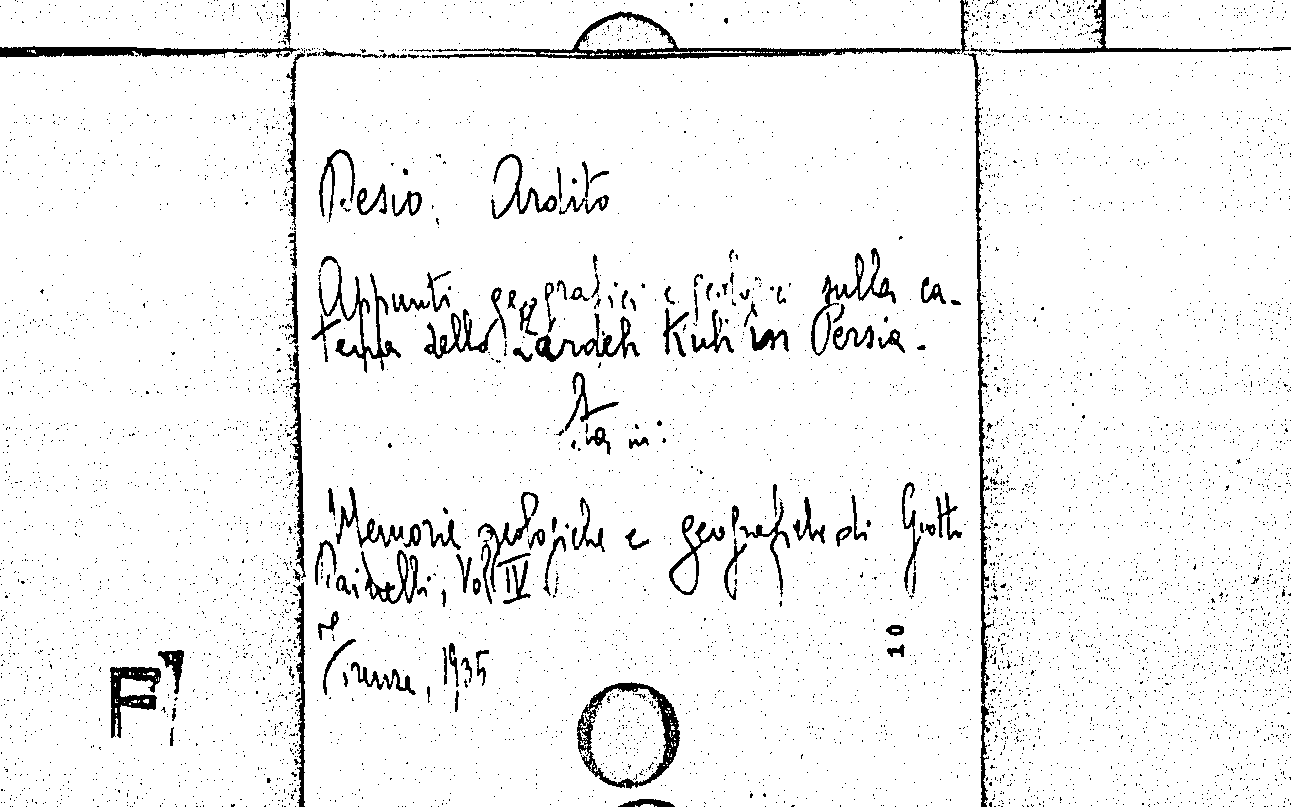 Desio, Ardito
Appunti geografici e geologici sulla ca-
tena dello Zardeh Kuh in Persia.
Sta in:
Memorie geologiche e geografiche di Giotto
Dainelli, Vol IV
Firenze, 1935
10
F